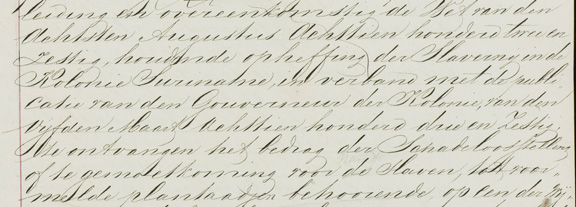 leiding en overeenkomstig de Wet van den
Achtsten Augustus Achttien honderd twee en
Zestig, houdende opheffing der Slavernij in de
Kolonie Suriname, in verband met de publi-
catie van den Gouverneur der Kolonie, van den
Vijfden Maart Achttien honderd drie en Zestig
te ontvangen het bedrag der Schadeloosstelling
of te gemoetkoming voor de Slaven, tot voor-
melde plantaadjen behoorende, op een der